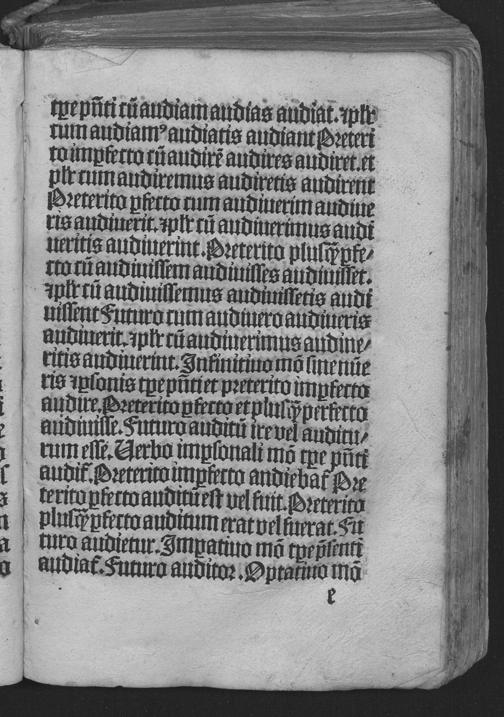 tꝑe pn̄ti cū audiam audias audiat. ⁊ pl̄r
cum audiamꝰ audiatis audiant Preteri
to imꝑfecto cū audirē audires audiret. et
pl̄r cum audiremus audiretis audirent
Preterito ꝑfecto cum audiuerim audiue
ris audiuerit. ⁊ pl̄r cū audiuerimus audi
ueritis audiuerint. Preterito plusq̄ꝑfe/
cto cū audiuissem audiuisses audiuisset.
⁊ pl̄r cū audiuissemus audiuissetis audi
uissent Futuro cum audiuero audiueris
audiuerit. ⁊ pl̄r cū audiuerimus audiue/
ritis audiuerint. Infinitiuo mō sine nūe
ris ⁊ ꝑsonis tꝑe pn̄ti et preterito imꝑfecto
audire. Preterito ꝑfecto et plusq̄ꝑerfecto
audiuisse. Futuro auditū ire vel auditu/
rum esse. Verbo imꝑsonali mō tꝑe pn̄ti
audit̄. Preterito imꝑfecto audiebat̄ Pre
terito ꝑfecto auditū est vel fuit. Preterito
plusq̄ꝑfecto auditum erat vel fuerat. Fu
turo audietur. Imꝑatiuo mō tꝑe p̄senti
audiat̄. Futuro auditor. Optatiuo mō
e